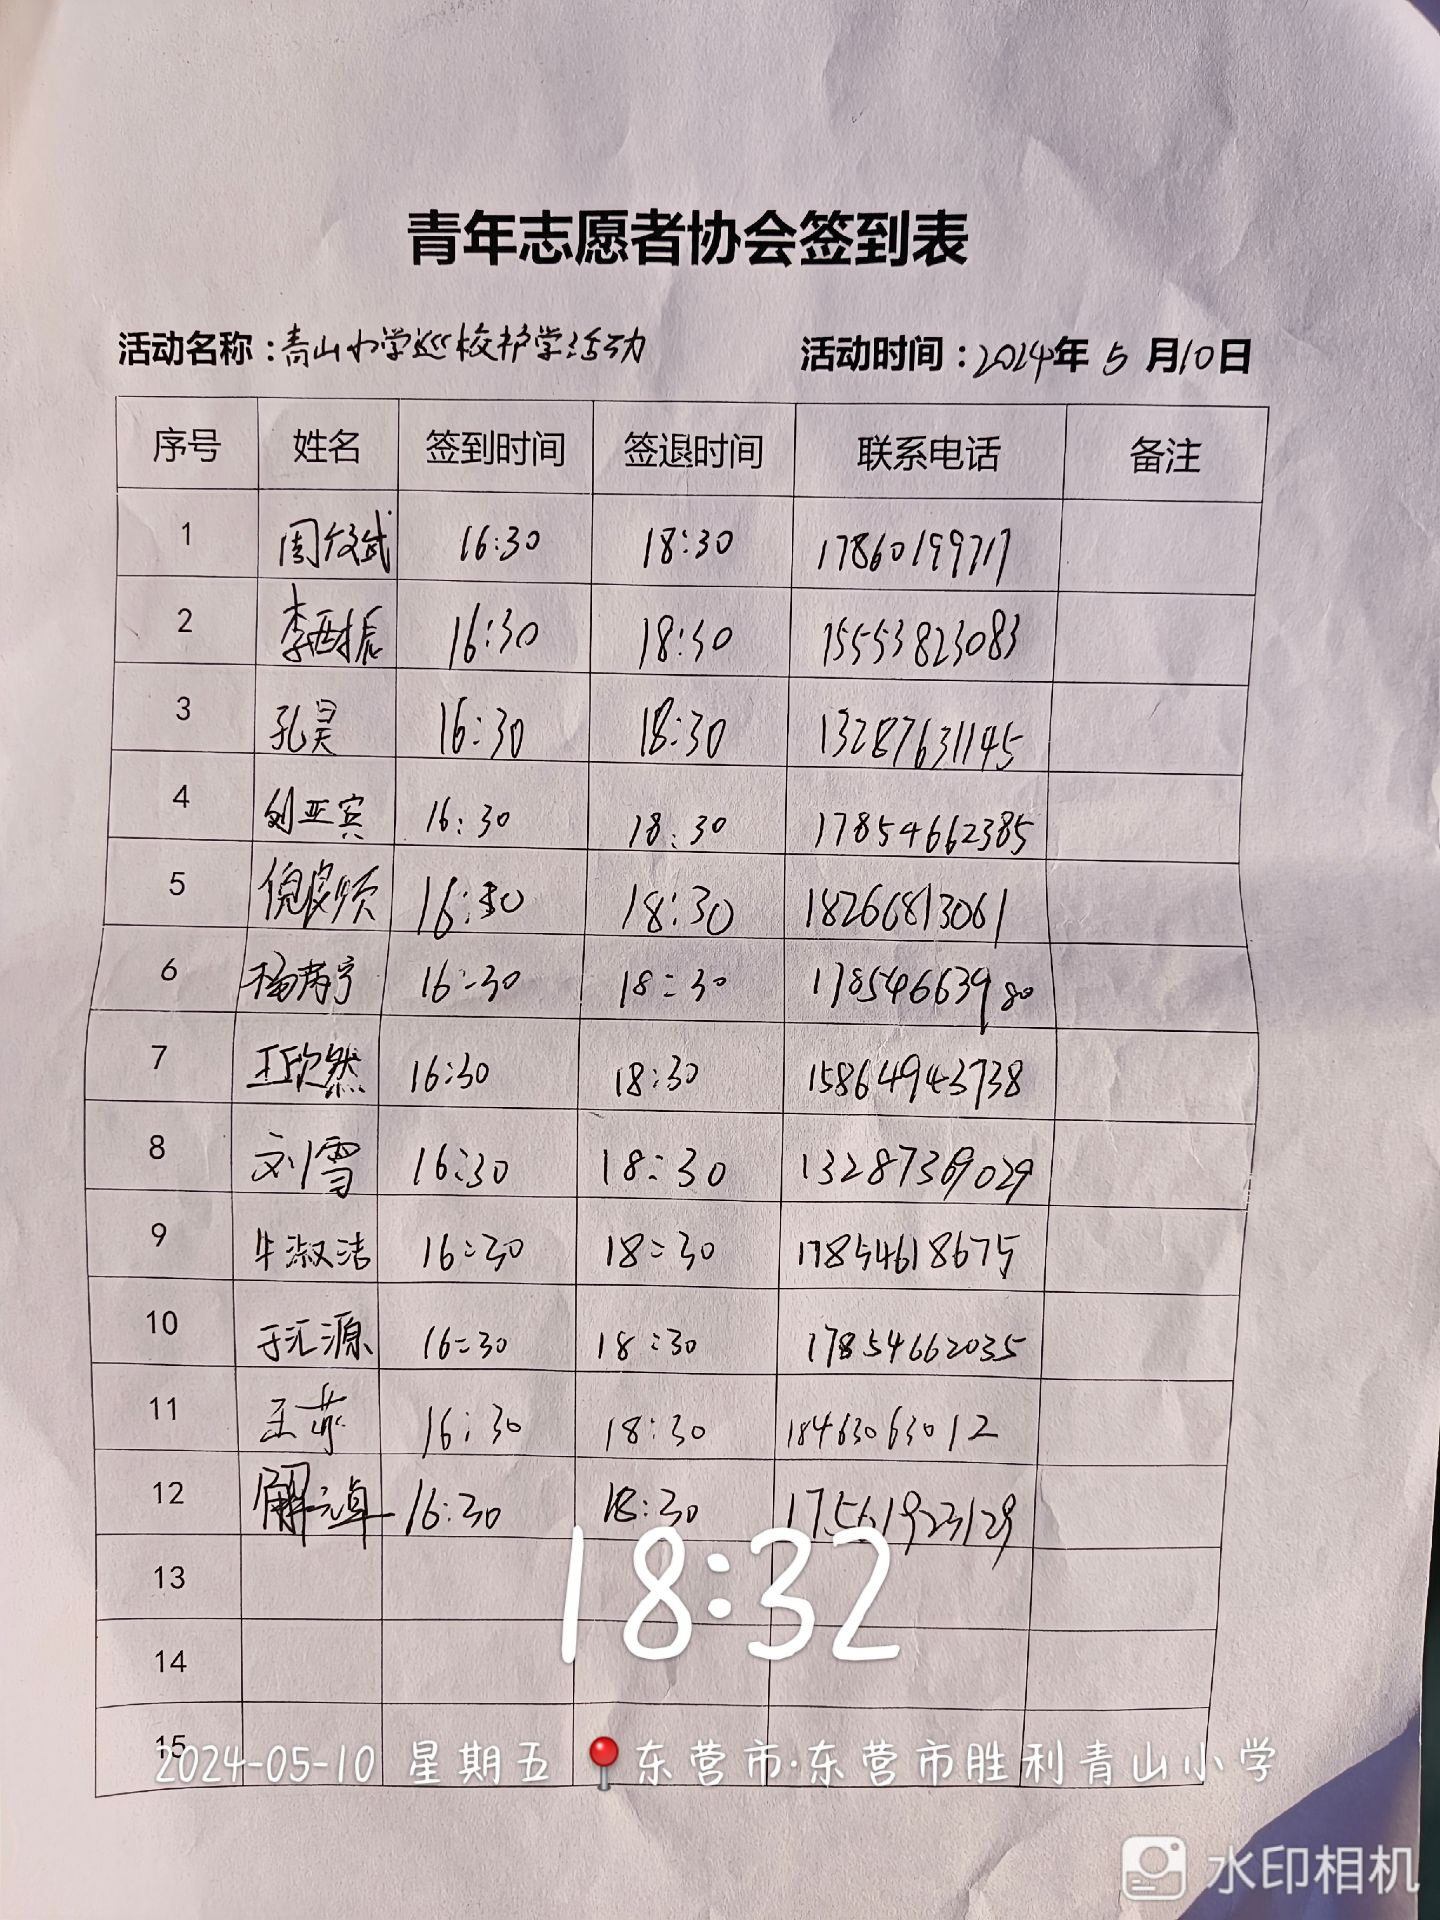 青年志愿者协会签到表
活动名称：青山小学巡校护学活动 活动时间：2024年5月10日
序号 姓名 签到时间 签退时间 联系电话 备注
1 周文斌 16:30 18:30 17860199717
2 李西振 16:30 18:30 15553823083
3 孔昊 16:30 18:30 13287631145
4 刘亚宾 16:30 18:30 17854662385
5 16:30 18:30 18266813061
6 16:30 18:30 17854663980
7 王欣然 16:30 18:30 15864943738
8 刘雪 16:30 18:30 13287369029
9 牛淑洁 16:30 18:30 17854618675
10 于汇源 16:30 18:30 17854662035
11 16:30 18:30 18463063012
12 16:30 18:30 17561923129
13
18:32
14
15
2024-05-10 星期五 东营市·东营市胜利青山小学
水印相机